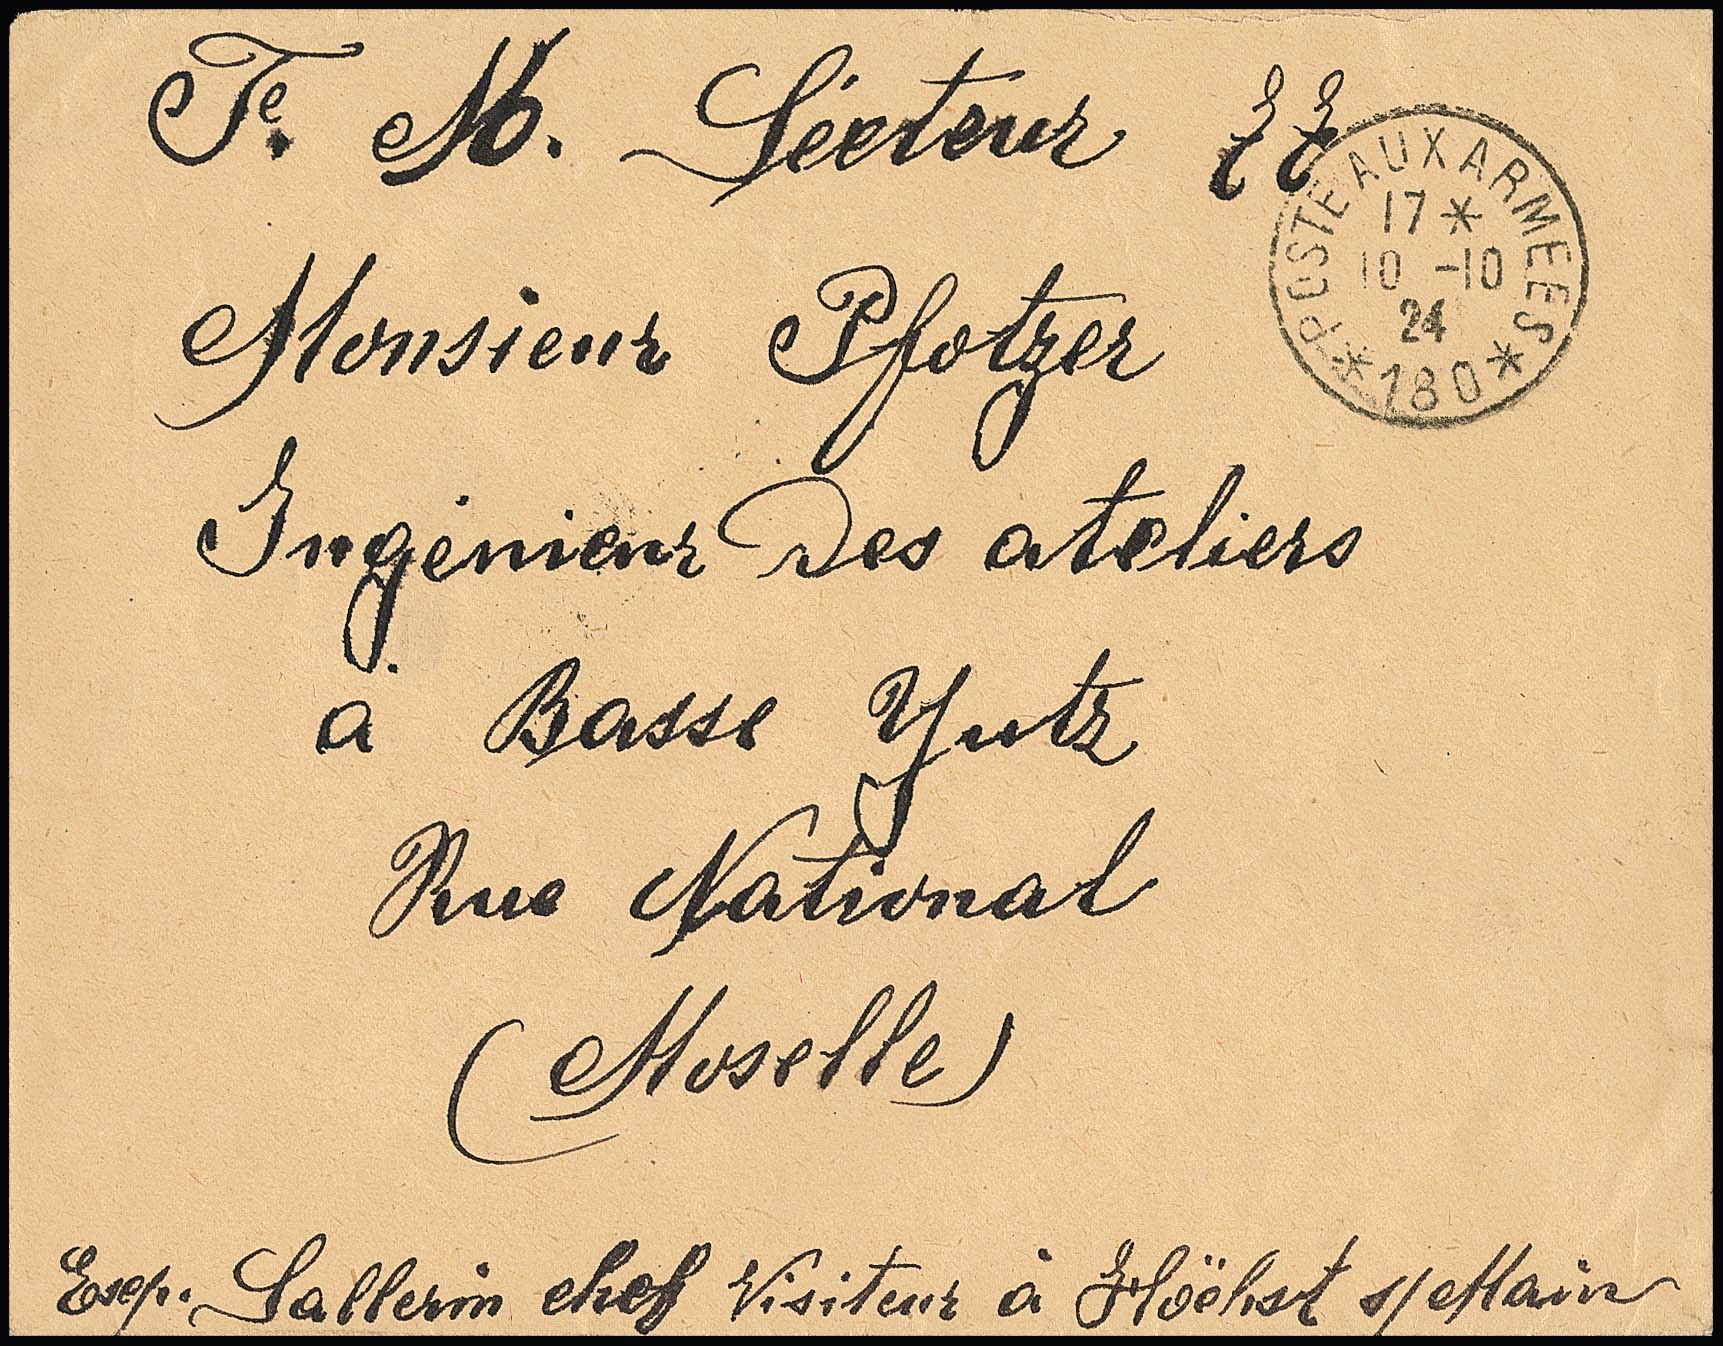 Fe. M. Sécteur 77
POSTE AUX ARMEES
17 *
10 -10
24
* 180 *
Monsieur Pfotzer
Ingénieur des ateliers
à Basse Yutz
Rue National
(Moselle)
Exp. Sallerin chef Visiteur à Höchst s/Main